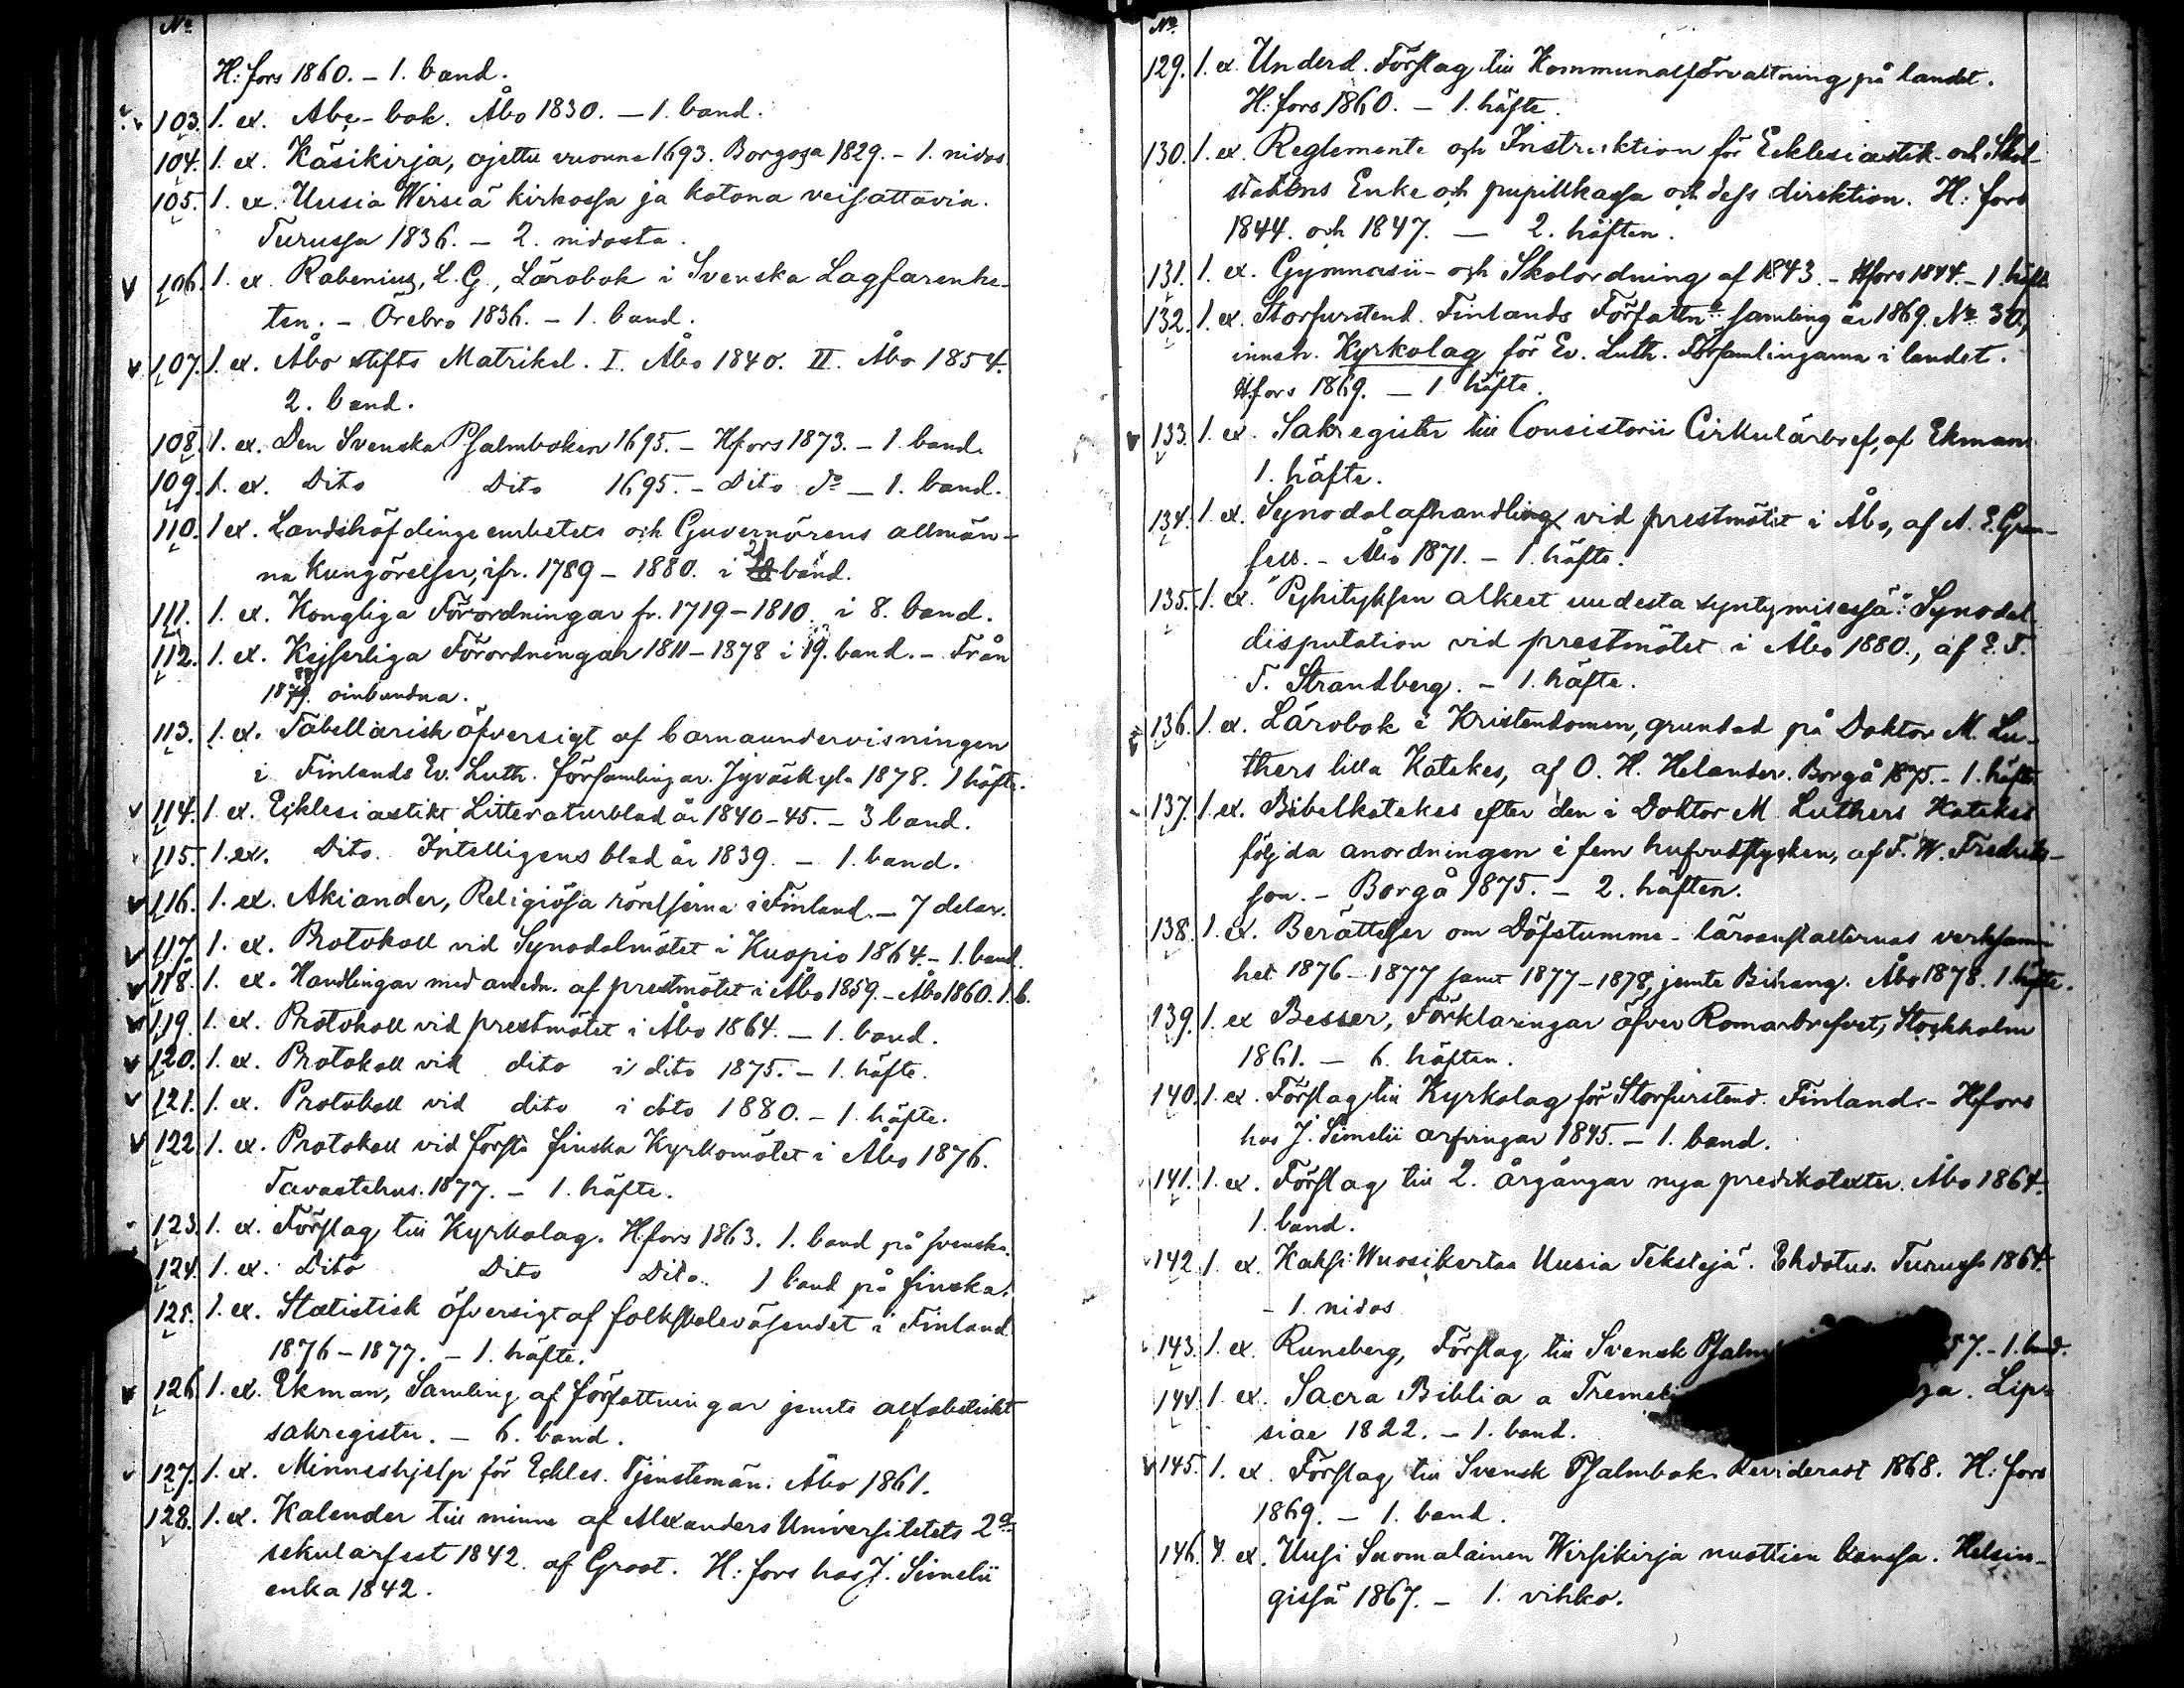 No
H:fors 1860. - 1. band.
103. 1. ex. Abc-bok. Åbo 1830. - 1. band.
104. 1. ex. Käsikirja, ojettu vuonna 1693. Borgossa 1829. - 1. nidos
105. 1. ex. Uusia Wirsiä kirkossa ja kotona veisattavia.
Turussa 1836. - 2. nidosta.
106. 1. ex. Rabenius, L. G., Lärobok i Svenska Lagfarenhe-
ten. - Örebro 1836. - 1. band.
107. 1. ex. Åbo stifts Matrikel. I. Åbo 1840. II. Åbo 1854.
2. band.
108. 1. ex. Den Svenska Psalmboken 1695. - Hfors 1873. - 1. band.
109. 1. ex. Dito Dito 1695. - Dito do - 1. band.
110. 1 ex. Landshöfdinge embetets och Guvernörens allmän-
na Kungörelser, ifr. 1789 - 1880. i 21 band.
111. 1. ex. Kongliga Förordningar fr. 1719 - 1810 i 8. band.
112. 1. ex. Kejserliga Förordningar 1811 - 1878 i 19. band. - Från
1879. oinbundna.
113. 1. ex. Tabellarisk öfversigt af barnaundervisningen
i Finlands Ev. Luth. församlingar. Jyväskylä 1878. 1 häfte.
114. 1. ex. Ecklesiastikt Litteraturblad år 1840-45. - 3 band.
115. 1. ex. Dito Intelligensblad år 1839. - 1. band.
116. 1. ex. Akiander, Religiösa rörelserna i Finland. - 7 delar.
117. 1. ex. Protokoll vid Synodalmötet i Kuopio 1864. - 1. band.
118. 1. ex. Handlingar med anledn. af prestmötet i Åbo 1859. - Åbo 1860. 1. b.
119. 1. ex. Protokoll vid prestmötet i Åbo 1864. - 1. band.
120. 1. ex. Protokoll vid dito i dito 1875. - 1. häfte.
121. 1. ex. Protokoll vid dito i dito 1880. - 1. häfte.
122. 1. ex. Protokoll vid första finska Kyrkomötet i Åbo 1876.
Tavastehus. 1877. - 1. häfte.
123. 1. ex. Förslag till Kyrkolag. Hfors 1863. 1. band på svenska.
124. 1. ex. Dito Dito Dito. 1 band på finska.
125. 1. ex. Statistisk öfversigt af folkskoleväsendet i Finland
1876-1877. - 1. häfte.
126. 1. ex. Ekman, Samling af författningar jemte alfabetiskt
sakregister. - 6. band.
127. 1. ex. Minneshjelp för Eckles. Tjenstemän. Åbo 1861.
128. 1. ex. Kalender till minne af Alexanders Universitetets 2a
sekularfest 1842. af Groot. H:fors hos J. Simelii
enka 1842.
No
129. 1. ex. Underd. Förslag till Kommunalförvaltning på landet.
H:fors 1860. - 1. häfte.
130. 1. ex. Reglemente och Instruktion för Ecklesiastik- och Skol-
statens Enke och pupillkassa och dess direktion. H:fors
1844. och 1847. - 2. häften.
131. 1. ex. Gymnasii- och Skolordning af 1843. - Hfors 1844. - 1. häfte
132. 1. ex. Storfurstend. Finlands Författn:s samling år 1869. No 30,
inneh. Kyrkolag för Ev. Luth. Församlingarna i landet.
Hfors 1869. - 1. häfte.
133. 1. ex. Sakregister till Consistorii Cirkulärbref, af Ekman.
1. häfte.
134. 1. ex. Synodalafhandling vid prestmötet i Åbo, af A. E. Gran-
felt. - Åbo 1871. - 1. häfte.
135. 1. ex. "Pyhityksen alkeet uudesta syntymisessä": Synodal-
disputation vid prestmötet i Åbo 1880., af E. F.
T. Strandberg. - 1. häfte.
136. 1. ex. Lärobok i Kristendomen, grundad på Doktor M. Lu-
thers lilla Katekes, af O. H. Helander. Borgå 1875. - 1. häfte
137. 1. ex. Bibelkatekes efter den i Doktor M. Luthers Katekes
följda anordningen i fem hufvudstycken, af F. W. Fredriks-
son. - Borgå 1875. - 2. häften.
138. 1. ex. Berättelser om Döfstumme-läroanstalternas verksam-
het 1876-1877 samt 1877-1878, jemte Bihang. Åbo 1878. 1 häfte.
139. 1. ex Besser, Förklaringar öfver Romarbrefvet, Stockholm
1861. - 6. häften.
140. 1. ex. Förslag till Kyrkolag för Storfurstend. Finland. - Hfors
hos J. Simelii arfvingar 1845. - 1. band.
141. 1. ex. Förslag till 2. årgångar nya predikotexter. Åbo 1864.
1. band.
142. 1. ex. Kaksi Wuosikertaa Uusia Tekstejä. Ehdotus. Turussa 1864.
- 1. nidos
143. 1. ex. Runeberg, Förslag till Svensk Psalm 57. - 1. band.
144. 1. ex. Sacra Biblia a Tremelio Lip-
siae 1822. - 1. band.
145. 1. ex. Förslag till Svensk Psalmbok. Revideradt 1868. H:fors
1869. - 1. band.
146. 4. ex. Uusi Suomalainen Wirsikirja nuottien kanssa. Helsin-
gissä 1867. - 1. vihko.